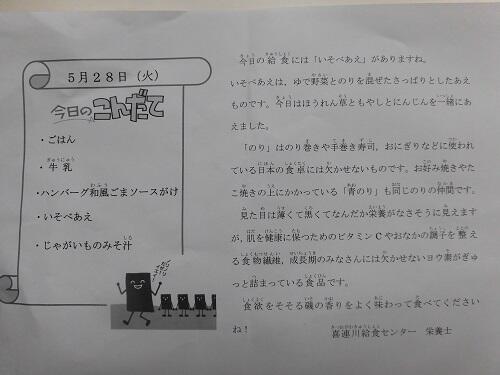 5月28日(火)
今日のこんだて
・ごはん
・牛乳
・ハンバーグ和風ごまソースがけ
・いそべあえ
・じゃがいものみそ汁
今日の給食には「いそべあえ」がありますね。
いそべあえは、ゆで野菜とのりを混ぜたさっぱりとしたあえ
ものです。今日はほうれん草ともやしとにんじんを一緒にあ
えました。
「のり」はのり巻きや手巻き寿司、おにぎりなどに使われ
ている日本の食卓には欠かせないものです。お好み焼きやた
こ焼きの上にかかっている「青のり」も同じのりの仲間です。
見た目は薄くて黒くてなんだか栄養がなさそうに見えます
が、肌を健康に保つためのビタミンCやおなかの調子を整え
る食物繊維、成長期のみなさんには欠かせないヨウ素がぎゅ
っと詰まっている食品です。
食欲をそそる磯の香りをよく味わって食べてください
ね!
喜連川給食センター 栄養士